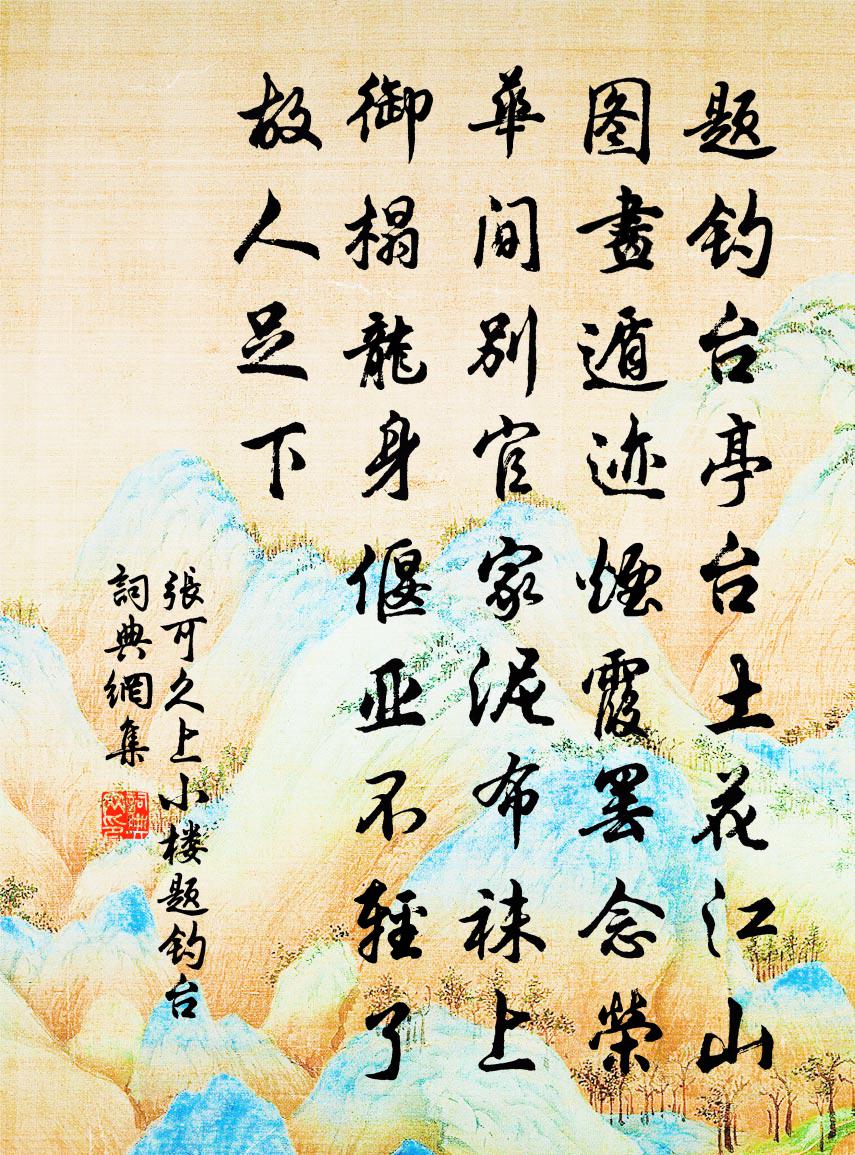 题钓台亭台土花江山
图畫遁迹煙霞罢念榮
華间别官家泥布袜上
御榻龍身偃亚不輕了
故人足下
張可久上小楼题钓台
詞典網集